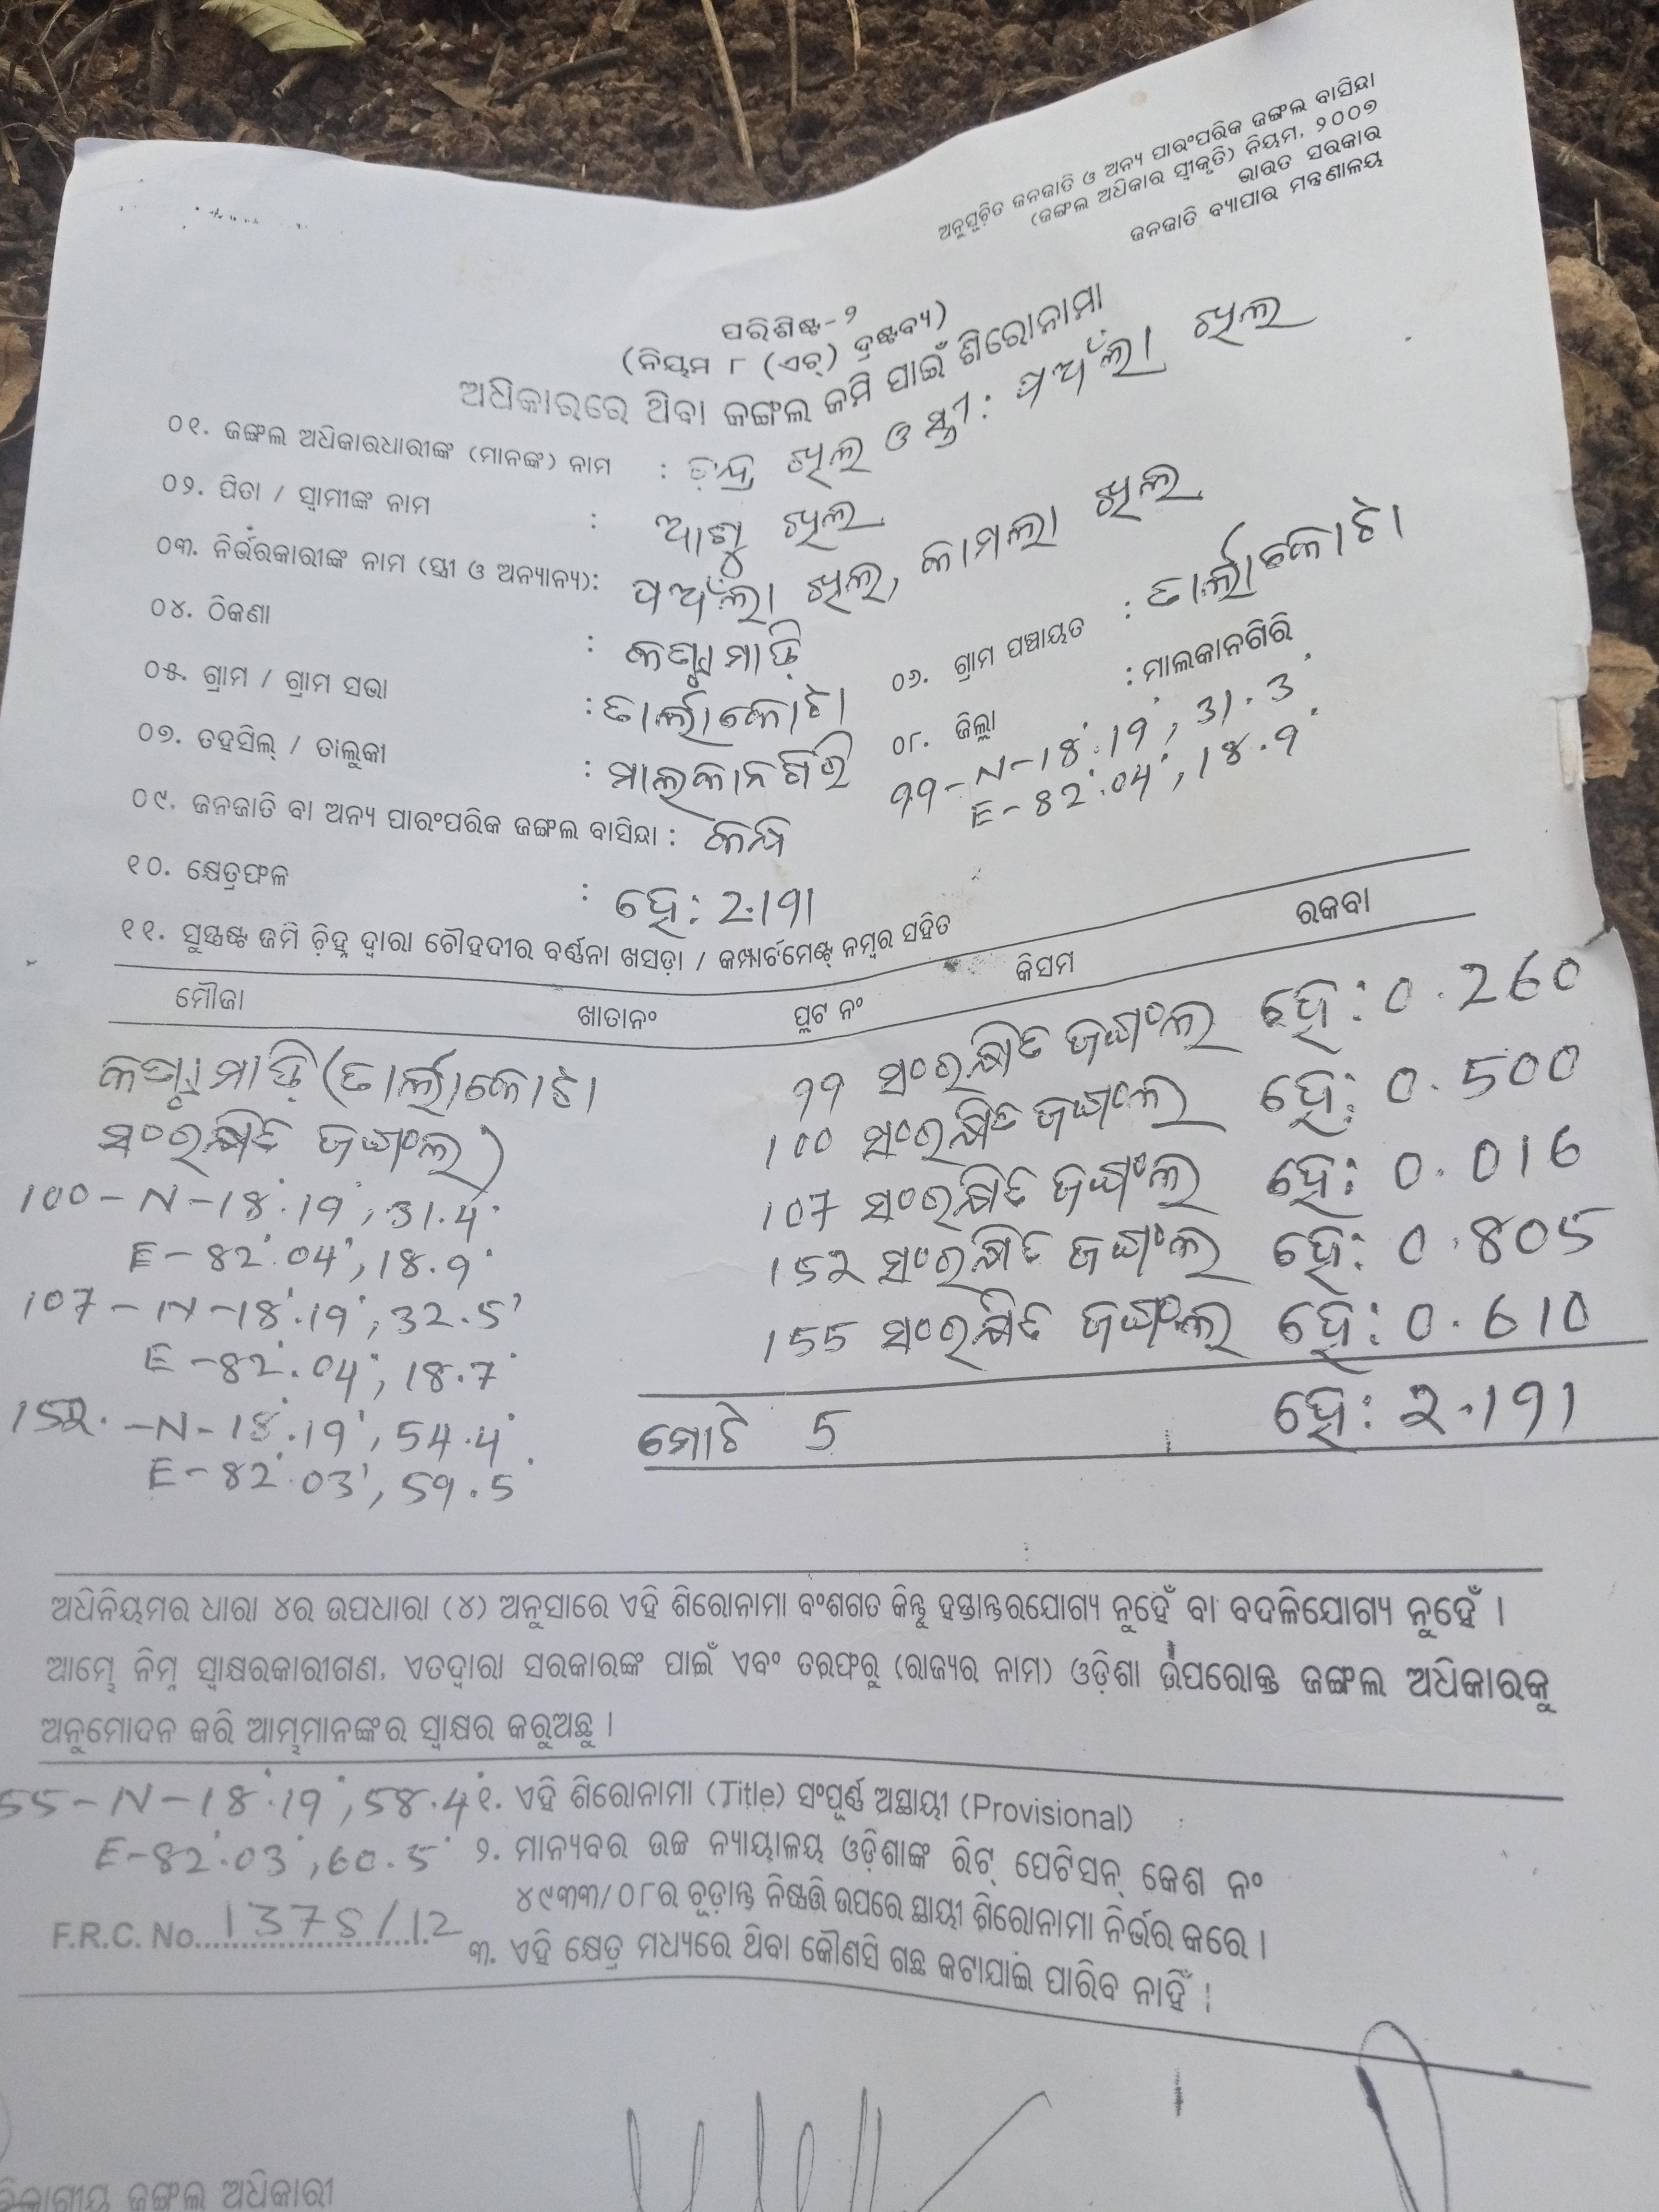 ଅନୁସୂଚିତ ଜନଜାତି ଓ ଅନ୍ୟ ପାରଂପରିକ ଜଙ୍ଗଲ ବାସିନ୍ଦା
(ଜଙ୍ଗଲ ଅଧିକାର ସ୍ୱୀକୃତି) ନିୟମ, ୨୦୦୭
ଭାରତ ସରକାର
ଜନଜାତି ବ୍ୟାପାର ମନ୍ତ୍ରଣାଳୟ
ପରିଶିଷ୍ଟ-୨
(ନିୟମ ୮ (ଏଚ୍) ଦ୍ରଷ୍ଟବ୍ୟ)
ଅଧିକାରରେ ଥିବା ଜଙ୍ଗଲ ଜମି ପାଇଁ ଶିରୋନାମା
୦୧. ଜଙ୍ଗଲ ଅଧିକାରଧାରୀଙ୍କ (ମାନଙ୍କ) ନାମ : ଚନ୍ଦ୍ର ଖିଲ ଓ ସ୍ତ୍ରୀ: ଖିଲ
୦୨. ପିତା / ସ୍ୱାମୀଙ୍କ ନାମ : ଖିଲ
୦୩. ନିର୍ଭରକାରୀଙ୍କ ନାମ (ସ୍ତ୍ରୀ ଓ ଅନ୍ୟାନ୍ୟ): ଖିଲ, କାମଲା ଖିଲ
୦୪. ଠିକଣା :
୦୫. ଗ୍ରାମ / ଗ୍ରାମ ସଭା : ତାର୍ଲାକୋଟା ୦୬. ଗ୍ରାମ ପଞ୍ଚାୟତ : ତାର୍ଲାକୋଟା
୦୭. ତହସିଲ୍ / ତାଲୁକା : ମାଲକାନଗିରି ୦୮. ଜିଲ୍ଲା : ମାଲକାନଗିରି
99-N-18°.19', 31.3"
E-82°.04', 18.9"
୦୯. ଜନଜାତି ବା ଅନ୍ୟ ପାରଂପରିକ ଜଙ୍ଗଲ ବାସିନ୍ଦା :
୧୦. କ୍ଷେତ୍ରଫଳ : ହେ: 2.191
୧୧. ସୁସ୍ପଷ୍ଟ ଜମି ଚିହ୍ନ ଦ୍ୱାରା ଚୌହଦୀର ବର୍ଣ୍ଣନା ଖସଡ଼ା / କମ୍ପାର୍ଟମେଣ୍ଟ ନମ୍ବର ସହିତ
ମୌଜା ଖାତାନଂ ପ୍ଲଟ ନଂ କିସମ ରକବା
(ତାର୍ଲାକୋଟା 99 ସଂରକ୍ଷିତ ଜଙ୍ଗଲ ହେ: 0.260
ସଂରକ୍ଷିତ ଜଙ୍ଗଲ) 100 ସଂରକ୍ଷିତ ଜଙ୍ଗଲ ହେ: 0.500
100-N-18°.19', 31.4" 107 ସଂରକ୍ଷିତ ଜଙ୍ଗଲ ହେ: 0.016
E-82°.04', 18.9" 152 ସଂରକ୍ଷିତ ଜଙ୍ଗଲ ହେ: 0.805
107-N-18°.19', 32.5" 155 ସଂରକ୍ଷିତ ଜଙ୍ଗଲ ହେ: 0.610
E-82°.04', 18.7"
152.-N-18°.19', 54.4" ମୋଟ 5 ହେ: 2.191
E-82°.03', 59.5"
ଅଧିନିୟମର ଧାରା ୪ର ଉପଧାରା (୪) ଅନୁସାରେ ଏହି ଶିରୋନାମା ବଂଶଗତ କିନ୍ତୁ ହସ୍ତାନ୍ତରଯୋଗ୍ୟ ନୁହେଁ ବା ବଦଳିଯୋଗ୍ୟ ନୁହେଁ ।
ଆମ୍ଭେ ନିମ୍ନ ସ୍ୱାକ୍ଷରକାରୀଗଣ, ଏତଦ୍ୱାରା ସରକାରଙ୍କ ପାଇଁ ଏବଂ ତରଫରୁ (ରାଜ୍ୟର ନାମ) ଓଡ଼ିଶା ଉପରୋକ୍ତ ଜଙ୍ଗଲ ଅଧିକାରକୁ
ଅନୁମୋଦନ କରି ଆମ୍ଭମାନଙ୍କର ସ୍ୱାକ୍ଷର କରୁଅଛୁ ।
55-N-18°.19', 58.4" ୧. ଏହି ଶିରୋନାମା (Title) ସଂପୂର୍ଣ୍ଣ ଅସ୍ଥାୟୀ (Provisional)
E-82°.03', 60.5" ୨. ମାନ୍ୟବର ଉଚ୍ଚ ନ୍ୟାୟାଳୟ ଓଡ଼ିଶାଙ୍କ ରିଟ୍ ପେଟିସନ୍ କେଶ ନଂ
୪୯୩୩/୦୮ର ଚୂଡ଼ାନ୍ତ ନିଷ୍ପତ୍ତି ଉପରେ ସ୍ଥାୟୀ ଶିରୋନାମା ନିର୍ଭର କରେ ।
F.R.C. No. 1375/12 ୩. ଏହି କ୍ଷେତ୍ର ମଧ୍ୟରେ ଥିବା କୌଣସି ଗଛ କଟାଯାଇ ପାରିବ ନାହିଁ ।
ଜଙ୍ଗଲ ଅଧିକାରୀ